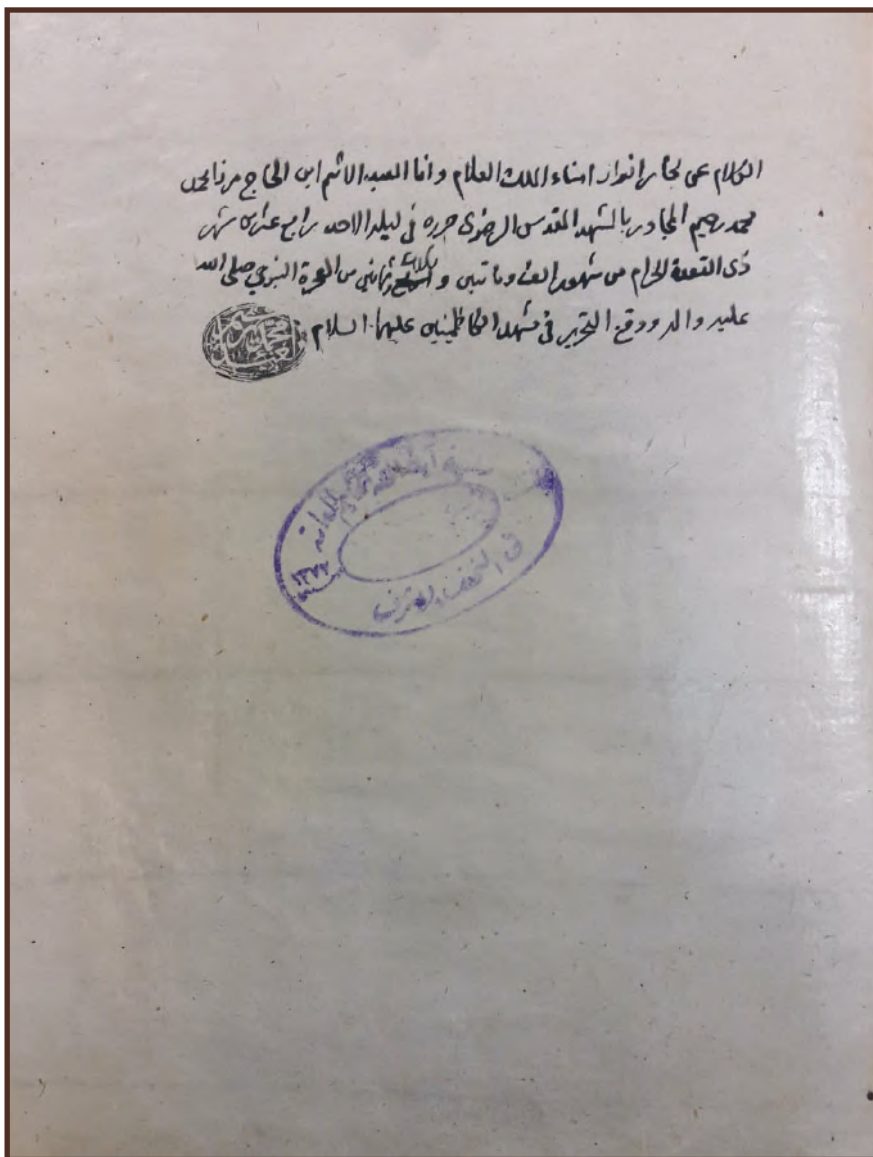 الكلام عن بحار انوار امناء الملك العلام و انا العبد الاثم ابن الحاج مرزا محمد
محمد رحيم المجاور بالمشهد المقدس الرضوى حرره فى ليلة الاحد رابع عشر من شهر
ذى القعدة الحرام من شهور الف و ماتين و ثلاث و ثمانين من الهجرة النبوى صلى الله
عليه و اله و وقع التحرير فى مشهد الكاظمين عليهما السلام
مكتبة آية الله الحكيم العامة
١٣٧٧
فى النجف الاشرف